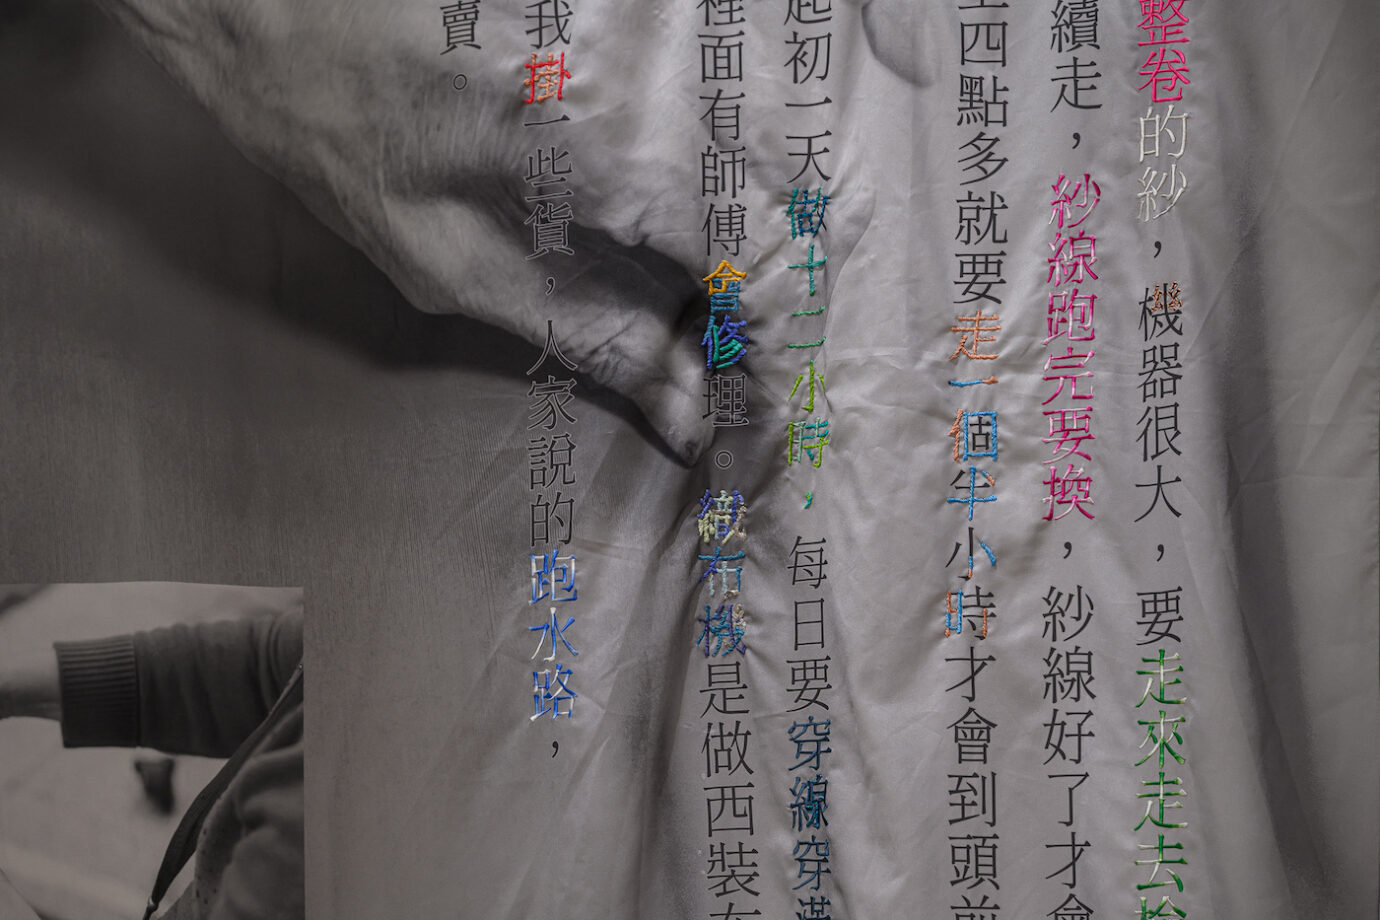 整卷的紗，機器很大，要走來走去撿
續走，紗線跑完要換，紗線好了才會
四點多就要走一個半小時才會到頭前
起初一天做十二小時，每日要穿線穿滿
裡面有師傅會修理。織布機是做西裝布
我掛一些貨，人家說的跑水路，
賣。